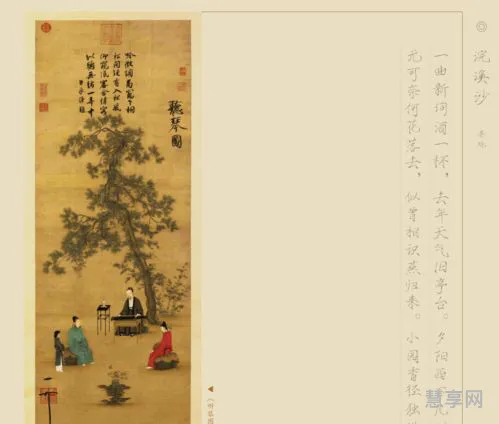 浣溪沙
晏殊
一曲新词酒一杯，去年天气旧亭台。夕阳西下几
无可奈何花落去，似曾相识燕归来。小园香径独
聽琴圖
吟徵調商竈下桐
松間疑有入松風
仰窺低審含情客
以聽無絃一弄中
臣京謹題
《听琴图
慧享网